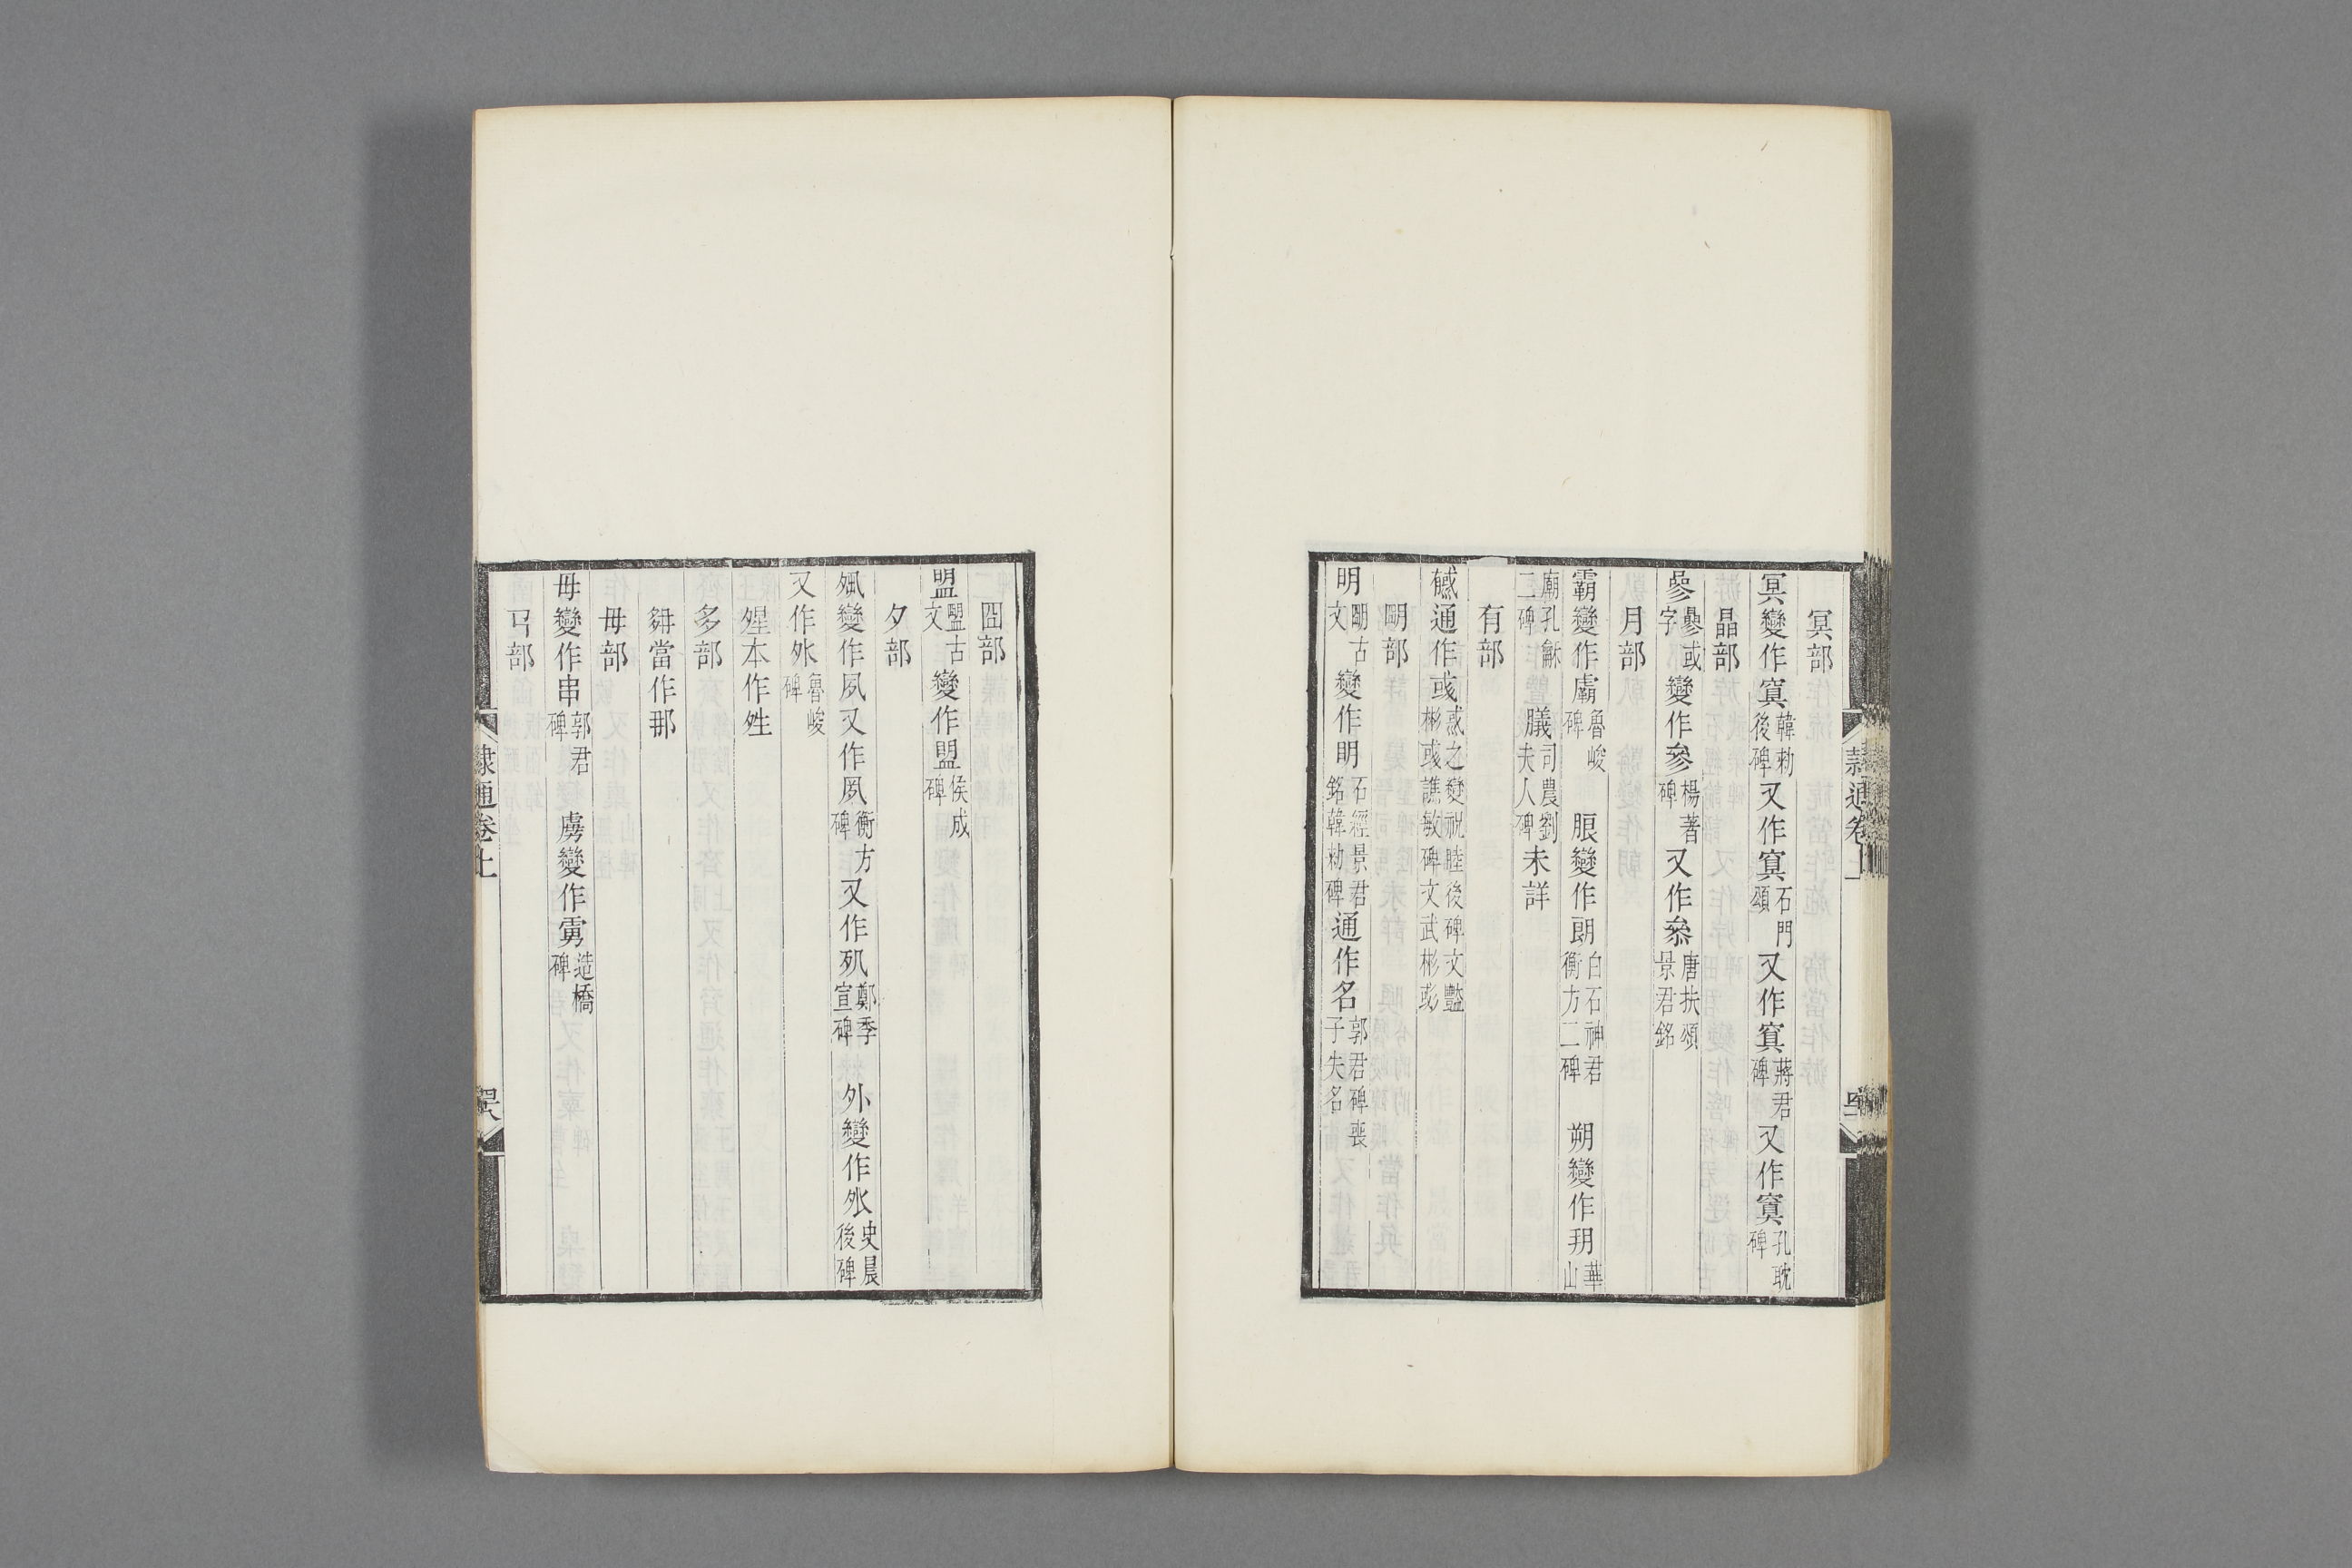 冥部
冥變作寞韓勑後碑又作寘石門頌又作寘蔣君碑又作寶孔耽碑
晶部
曑曑或字變作參楊著碑又作叅唐扶頌景君銘
月部
霸變作灞魯峻碑 朖變作朗白石神君衡方二碑 朔變作玥華山
廟孔龢二碑 䑏司農劉夫人碑未詳
有部
䰭通作彧惑之變祝睦後碑文豔彬彧譙敏碑文武彬彧
朙部
明朙古文變作明石經景君銘韓勑碑通作名郭君碑喪子失名
隸通卷上
囧部
盟盟古文變作盟侯成碑
夕部
夙變作夙又作夙衡方碑又作夙鄭季宣碑 外變作外史晨後碑
又作外魯峻碑
夝本作姓
多部
𡖇當作那
毌部
毌變作串郭君碑 虜變作虏造橋碑
𢎘部
隸通卷上
四八